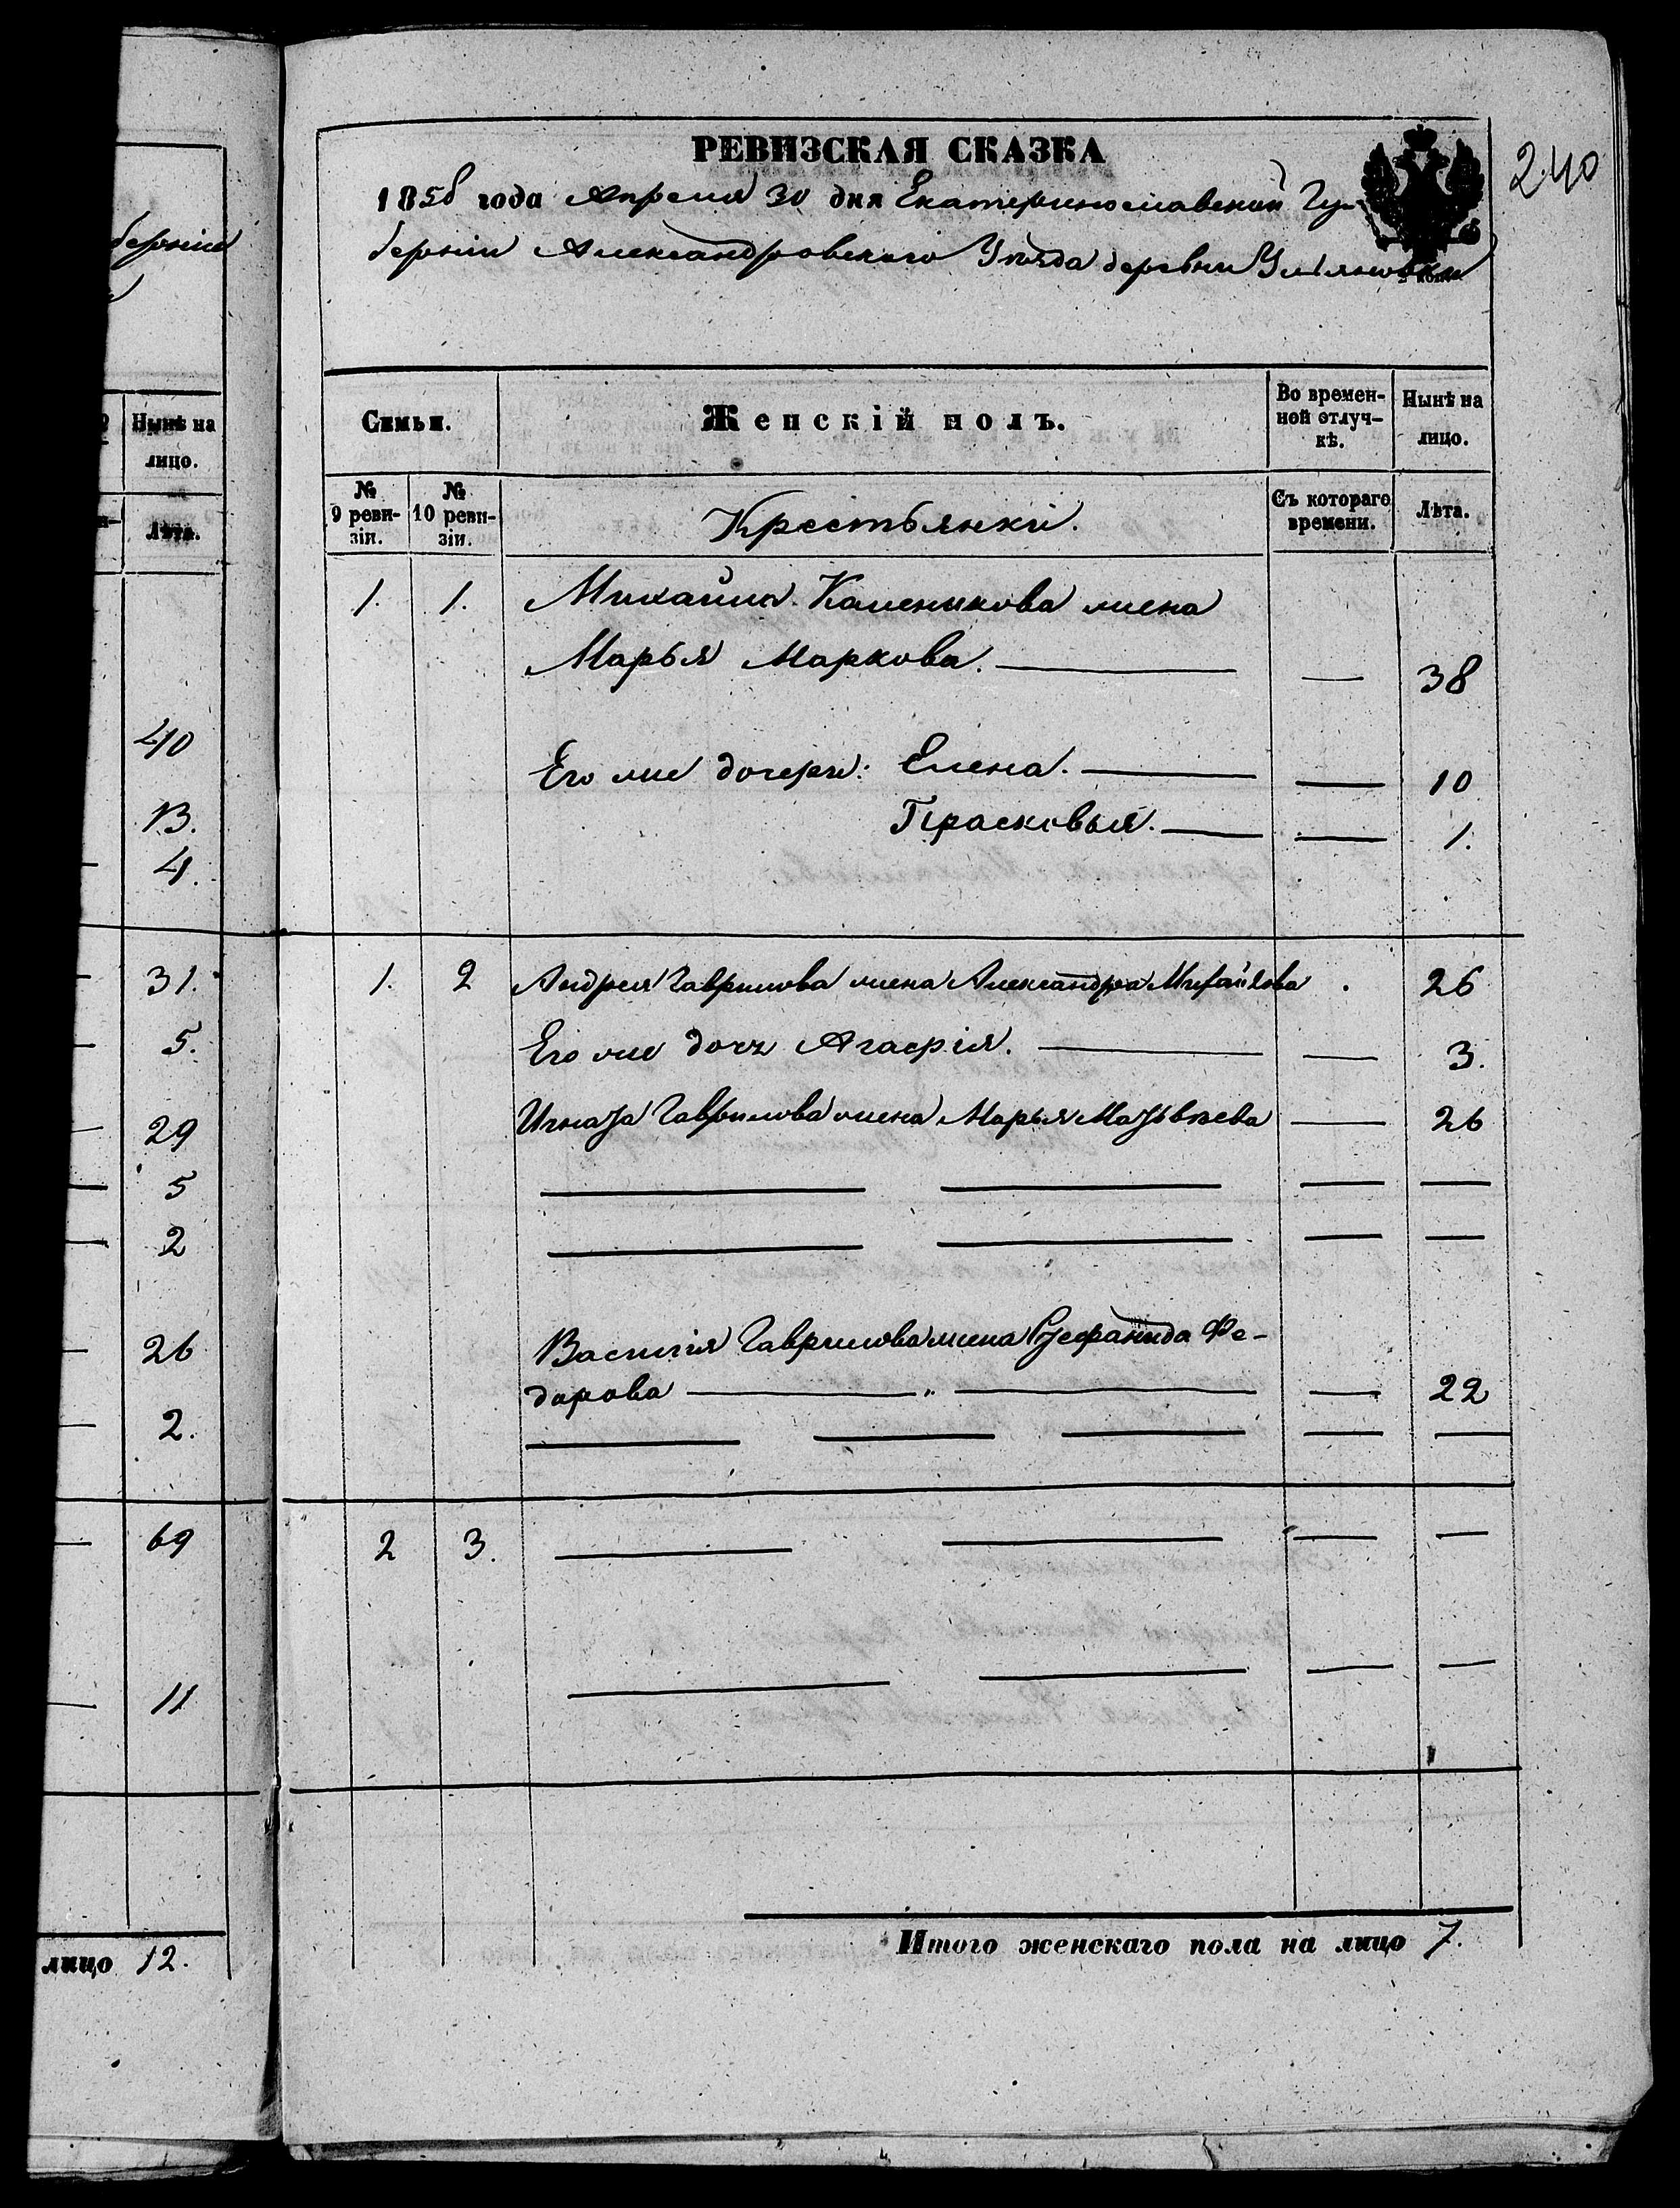 берніи
Нынѣ на
лицо.
Лѣта.
40
13.
4.
31.
5.
29
5
2
26
2.
69
11
лицо 12.
240
РЕВИЗСКАЯ СКАЗКА
1858 года Апреля 30 дня Екатеринославской Гу-
берніи Александровскаго Уѣзда деревни Ульяновки
Семьи. Женскій полъ. Во времен-ной отлуч-кѣ. Нынѣ на лицо.
№ 9 реви-зіи. № 10 реви-зіи. Крестьянки. Съ котораго времени. Лѣта.
1. 1. Михайла Каленикова жена
Марья Маркова. — — 38
Его же дочери: Елена. — — 10
Прасковья. — — 1.
1. 2 Андрея Гаврилова жена Александра Михайлова 26
Его же дочь Агафія. — — 3.
Игната Гаврилова жена Марья Матвѣева — 26
— — — —
— — — —
Василія Гаврилова жена Стефанида Фе-
дорова — „ — — 22
— — — — —
2 3. — — — —
— — — —
Итого женскаго пола на лицо 7.